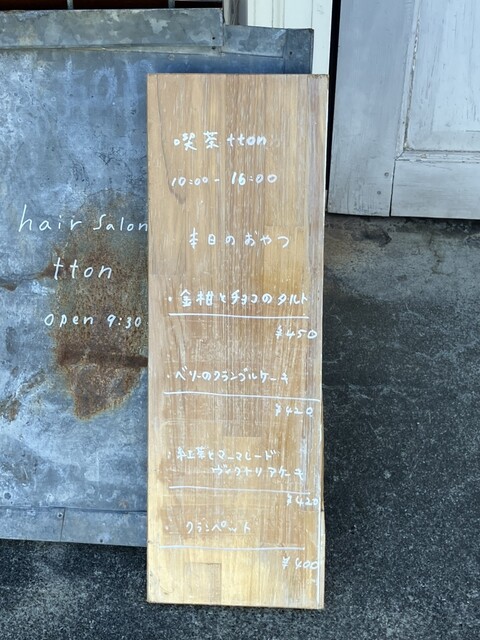 hair salon
tton
open 9:30
喫茶tton
10:00 - 16:00
本日のおやつ
・金柑とチョコのタルト
¥450
・ベリーのクランブルケーキ
¥420
・紅茶とマーマレード
ヴィクトリアケーキ
¥420
・クランペット
¥400